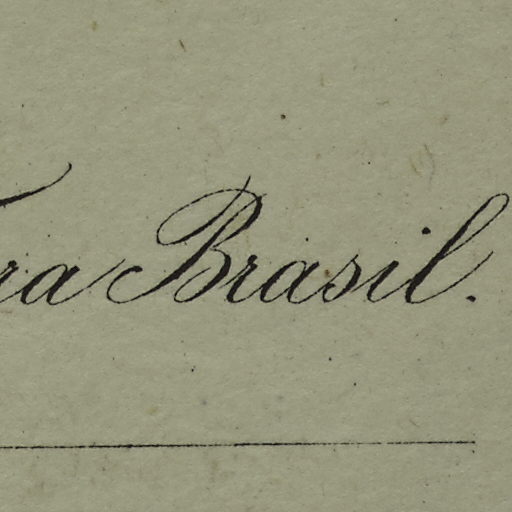 ra Brasil.